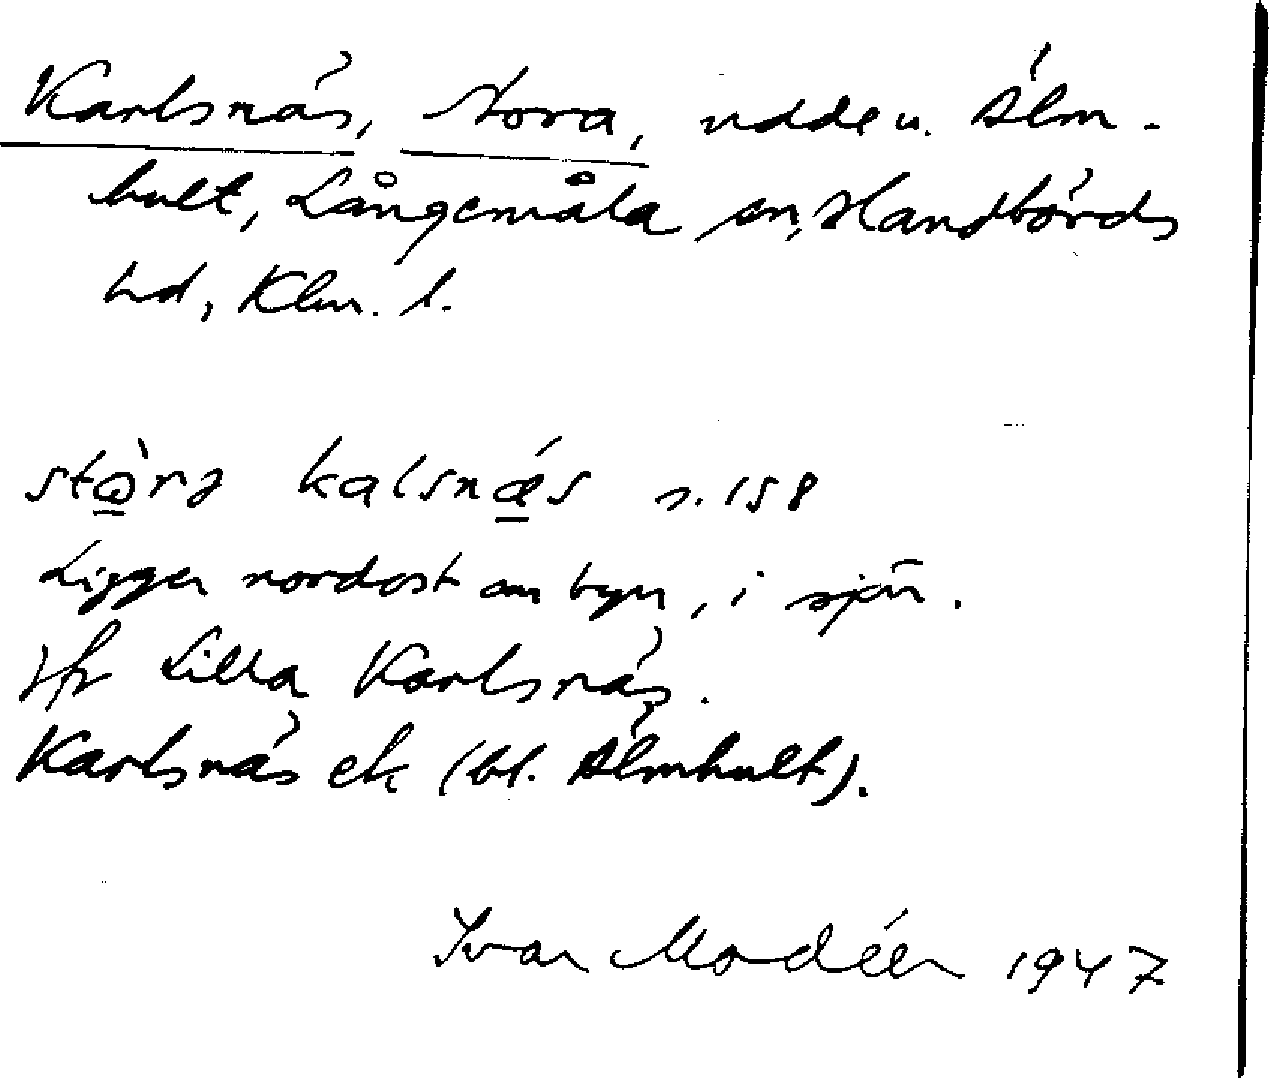 Karlsnäs, Stora, udde u. Älm-
hult, Långemåla sn, Handbörds
hd, Klm. l.
stɷ̀rə kalsnǽs s. 158
Ligger nordost om byn, i sjön.
Jfr Lilla Karlsnäs.
Karlsnäs ek (bl. Älmhult).
Ivar Modéer 1947